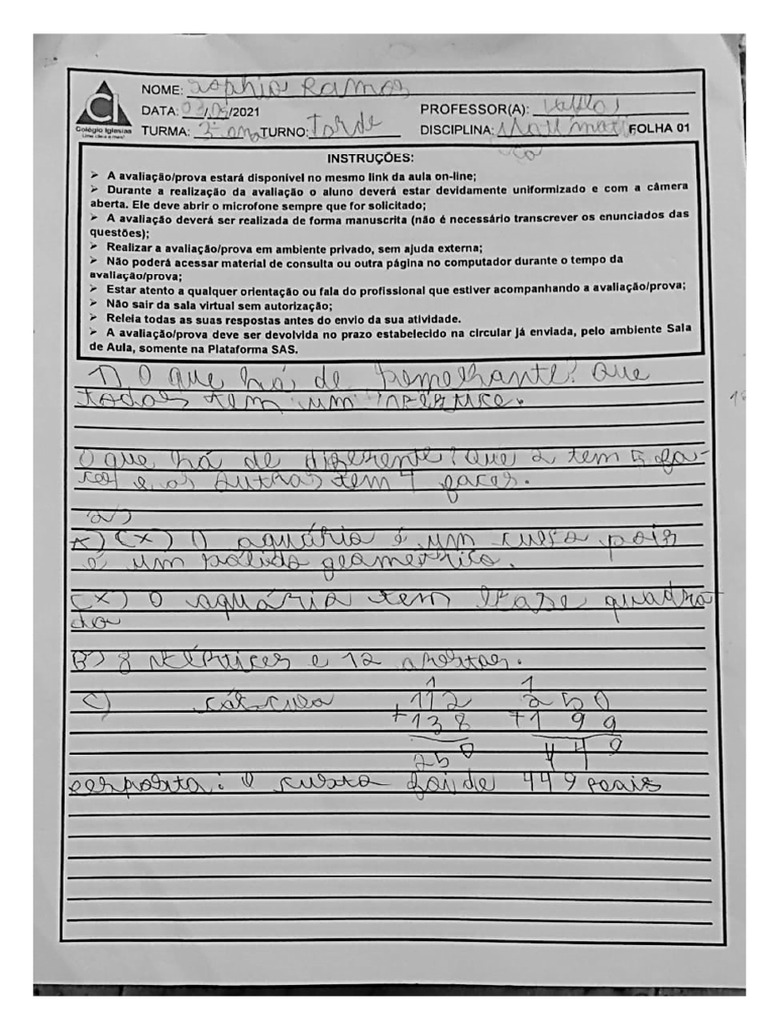 NOME: Sophia Ramos
CI
Colégio Iglesias
DATA: 03/05/2021 PROFESSOR(A):
TURMA: 3º ano TURNO: Tarde DISCIPLINA: Matemáti FOLHA 01
ca
INSTRUÇÕES:
➢ A avaliação/prova estará disponível no mesmo link da aula on-line;
➢ Durante a realização da avaliação o aluno deverá estar devidamente uniformizado e com a câmera
aberta. Ele deve abrir o microfone sempre que for solicitado;
➢ A avaliação deverá ser realizada de forma manuscrita (não é necessário transcrever os enunciados das
questões);
➢ Realizar a avaliação/prova em ambiente privado, sem ajuda externa;
➢ Não poderá acessar material de consulta ou outra página no computador durante o tempo da
avaliação/prova;
➢ Estar atento a qualquer orientação ou fala do profissional que estiver acompanhando a avaliação/prova;
➢ Não sair da sala virtual sem autorização;
➢ Releia todas as suas respostas antes do envio da sua atividade.
➢ A avaliação/prova deve ser devolvida no prazo estabelecido na circular já enviada, pelo ambiente Sala
de Aula, somente na Plataforma SAS.
1) O que há de semelhante? Que
todas tem um
O que há de diferente? Que 2 tem 5 fa-
ces e as outras tem 4 faces.
2)
A) (X) O aquário é um cubo pois
é um sólido geométrico.
(X) O aquário tem base quadra
da
B) 8 vértices e 12 arestas.
1 1
C) cálculo 112 250
+138 +199
250 449
resposta: O custo foi de 449 reais